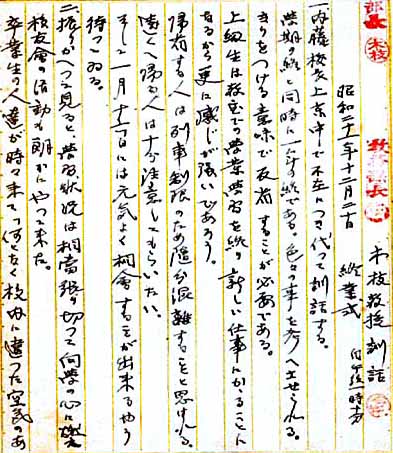 昭和二十年十二月二十日
終業式
木枝教授訓話
一、内藤校長上京中で不在につき代つて訓話する。
学期の終と同時に一年の終である。色々の事を考へさせられる。
きりをつける意味で反省することが必要である。
上級生は校里での営業学習を終り新しい仕事にかゝることに
なるから更に感じが強いであらう。
帰省する人は列車制限のため随分混雑することと思はれる。
遠くへ帰る人は十分注意してもらいたい。
そして一月十一日には元気よく相会することが出来るやう
待つてゐる。
二、振りかへつて見ると、学習状況は相当張り切つて向学の心に燃え
校友会の活動も朗かにやつて来た。
卒業生の人達が時々来て何となく校内に違つた空気のあ